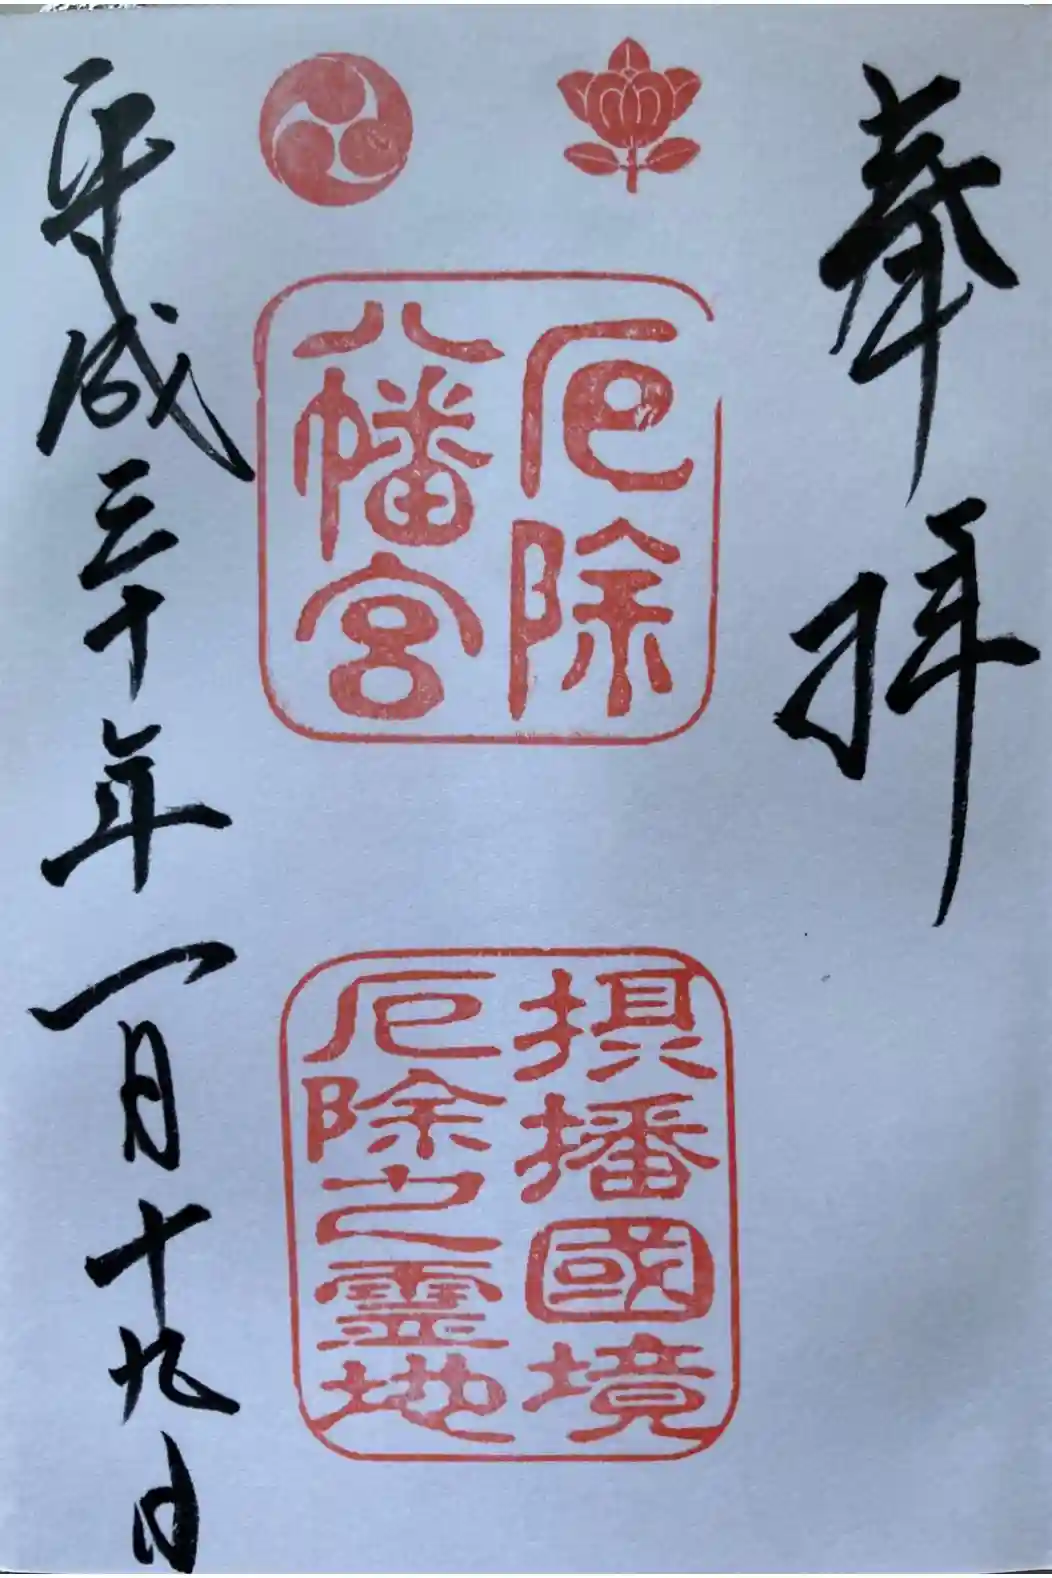 奉拝
厄除
八幡宮
摂播國境
厄除之霊地
平成三十年一月十九日